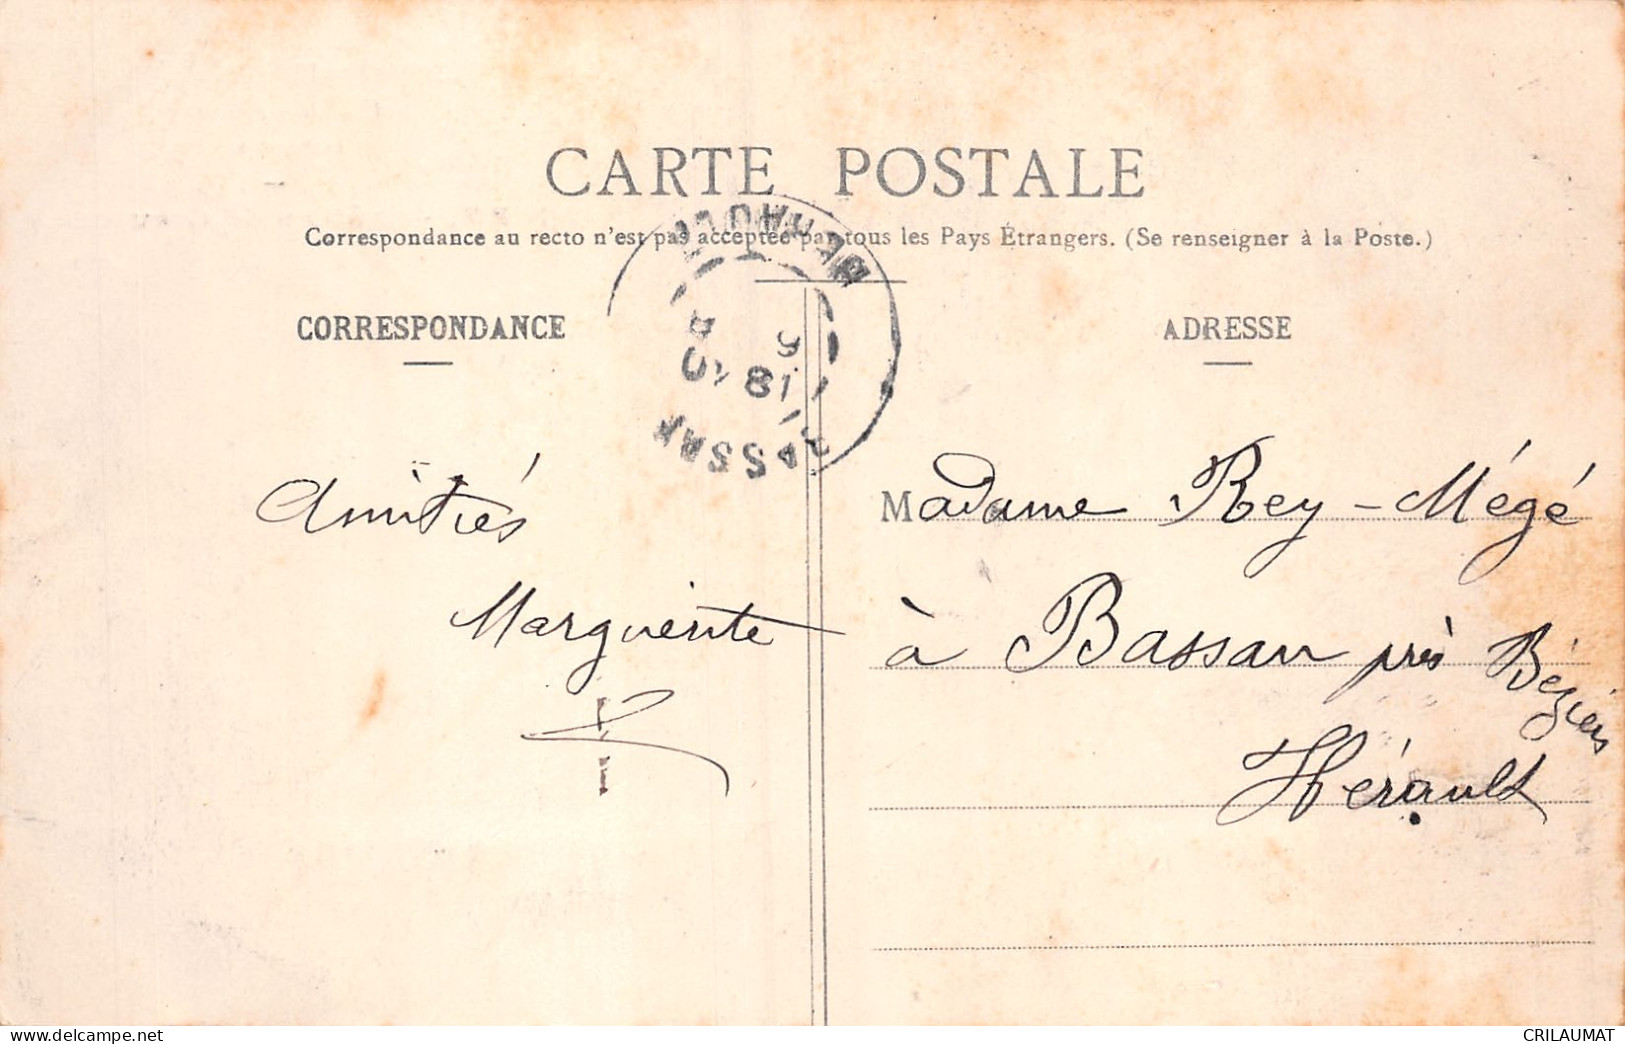 CARTE POSTALE
Correspondance au recto n'est pas acceptée par tous les Pays Étrangers. (Se renseigner à la Poste.)
CORRESPONDANCE
ADRESSE
Amitiés
Marguerite
Madame Rey-Mégé
à Bassan près Béziers
Hérault
CRILAUMAT